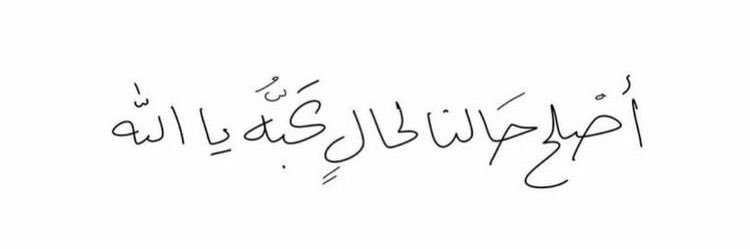 أصْلح حَالنا لحالٍ تحَبُّه يا الله